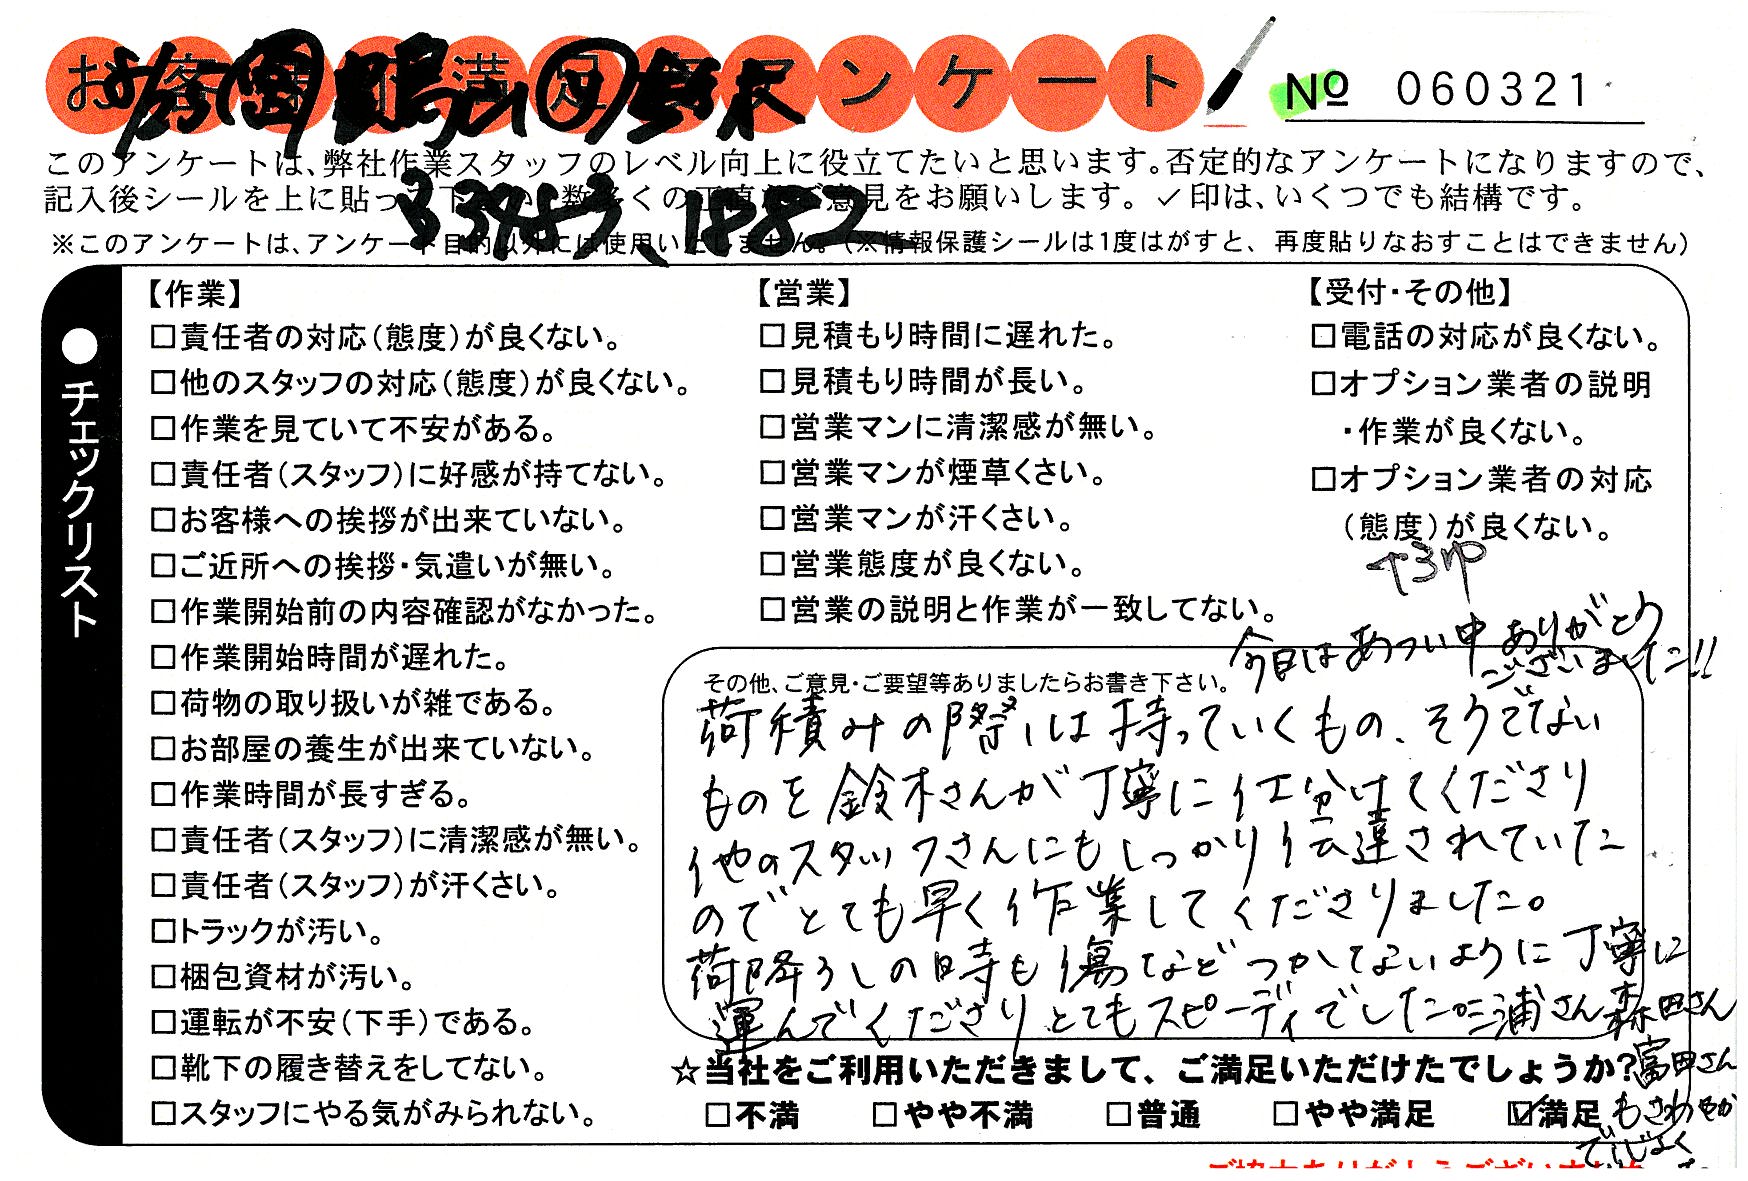 お客様満足度アンケート
№ 060321
このアンケートは、弊社作業スタッフのレベル向上に役立てたいと思います。否定的なアンケートになりますので、
記入後シールを上に貼って下さい。数多くの正直なご意見をお願いします。✓印は、いくつでも結構です。
※このアンケートは、アンケート目的以外には使用いたしません。(※情報保護シールは1度はがすと、再度貼りなおすことはできません)
●チェックリスト
【作業】
□責任者の対応(態度)が良くない。
□他のスタッフの対応(態度)が良くない。
□作業を見ていて不安がある。
□責任者(スタッフ)に好感が持てない。
□お客様への挨拶が出来ていない。
□ご近所への挨拶・気遣いが無い。
□作業開始前の内容確認がなかった。
□作業開始時間が遅れた。
□荷物の取り扱いが雑である。
□お部屋の養生が出来ていない。
□作業時間が長すぎる。
□責任者(スタッフ)に清潔感が無い。
□責任者(スタッフ)が汗くさい。
□トラックが汚い。
□梱包資材が汚い。
□運転が不安(下手)である。
□靴下の履き替えをしてない。
□スタッフにやる気がみられない。
【営業】
□見積もり時間に遅れた。
□見積もり時間が長い。
□営業マンに清潔感が無い。
□営業マンが煙草くさい。
□営業マンが汗くさい。
□営業態度が良くない。
□営業の説明と作業が一致してない。
【受付・その他】
□電話の対応が良くない。
□オプション業者の説明
・作業が良くない。
□オプション業者の対応
(態度)が良くない。
今日はあつい中ありがとう
ございました!!
その他、ご意見・ご要望等ありましたらお書き下さい。
荷積みの際は持っていくもの、そうでない
ものを鈴木さんが丁寧に仕分けてくださり
他のスタッフさんにもしっかり伝達されていた
のでとても早く作業してくださりました。
荷降ろしの時も傷などつかないように丁寧に
運んでくださりとてもスピーディでした。三浦さん森田さん
富田さん
もさわやか
☆当社をご利用いただきまして、ご満足いただけたでしょうか?
□不満 □やや不満 □普通 □やや満足 ☑満足